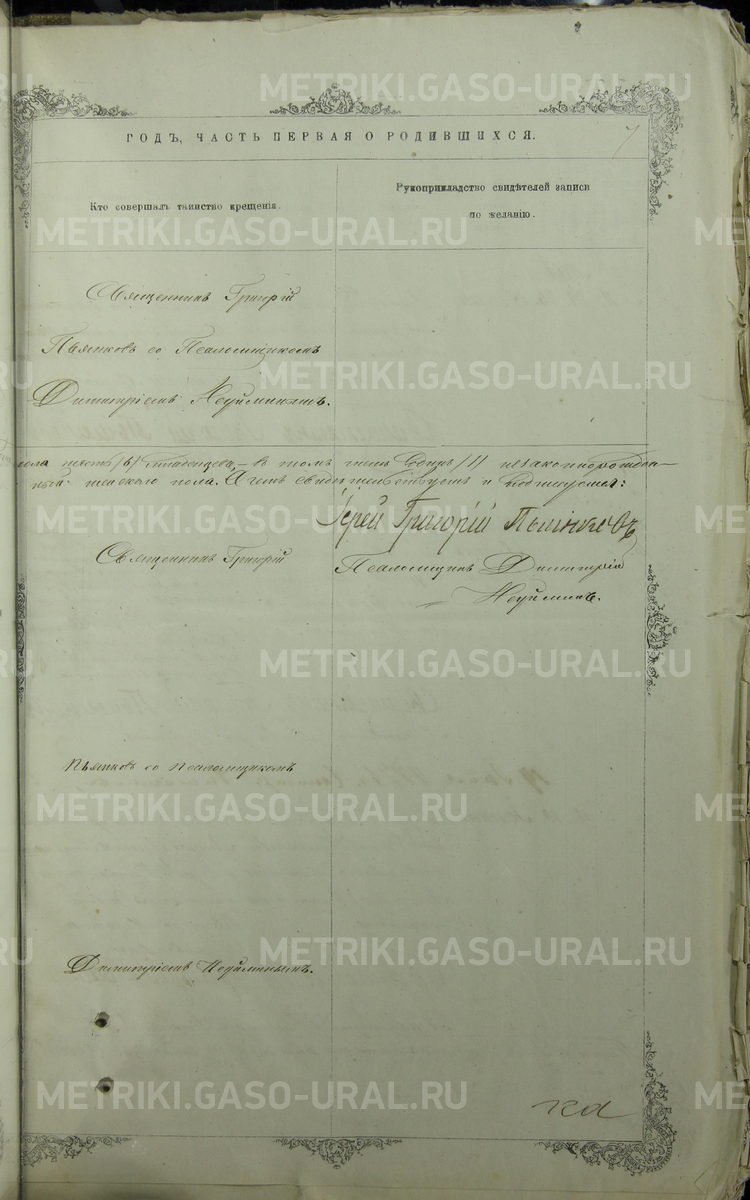 METRIKI.GASO-URAL.RU
ГОДЪ, ЧАСТЬ ПЕРВАЯ О РОДИВШИХСЯ.
7
Кто совершалъ таинство крещенія.
Рукоприкладство свидѣтелей записи
по желанію.
METRIKI.GASO-URAL.RU
Священникъ Григорій
Пьянковъ со Псаломщикомъ
METRIKI.GASO-URAL.RU
Димитріемъ Неуйминымъ.
пола шесть /6/ младенцевъ, – въ томъ числѣ Одинъ /1/ незаконнорожден-
ный женскаго пола. В чемъ свидѣтельствуемъ и подписуемся:
Іерей Григорій Пьянковъ
METRIKI.GASO-URAL.RU
Священникъ Григорій
Псаломщикъ Димитрій
Неуйминъ.
METRIKI.GASO-URAL.RU
Пьянковъ со Псаломщикомъ
METRIKI.GASO-URAL.RU
METRIKI.GASO-URAL.RU
Димитріемъ Неуйминымъ.
METRIKI.GASO-URAL.RU